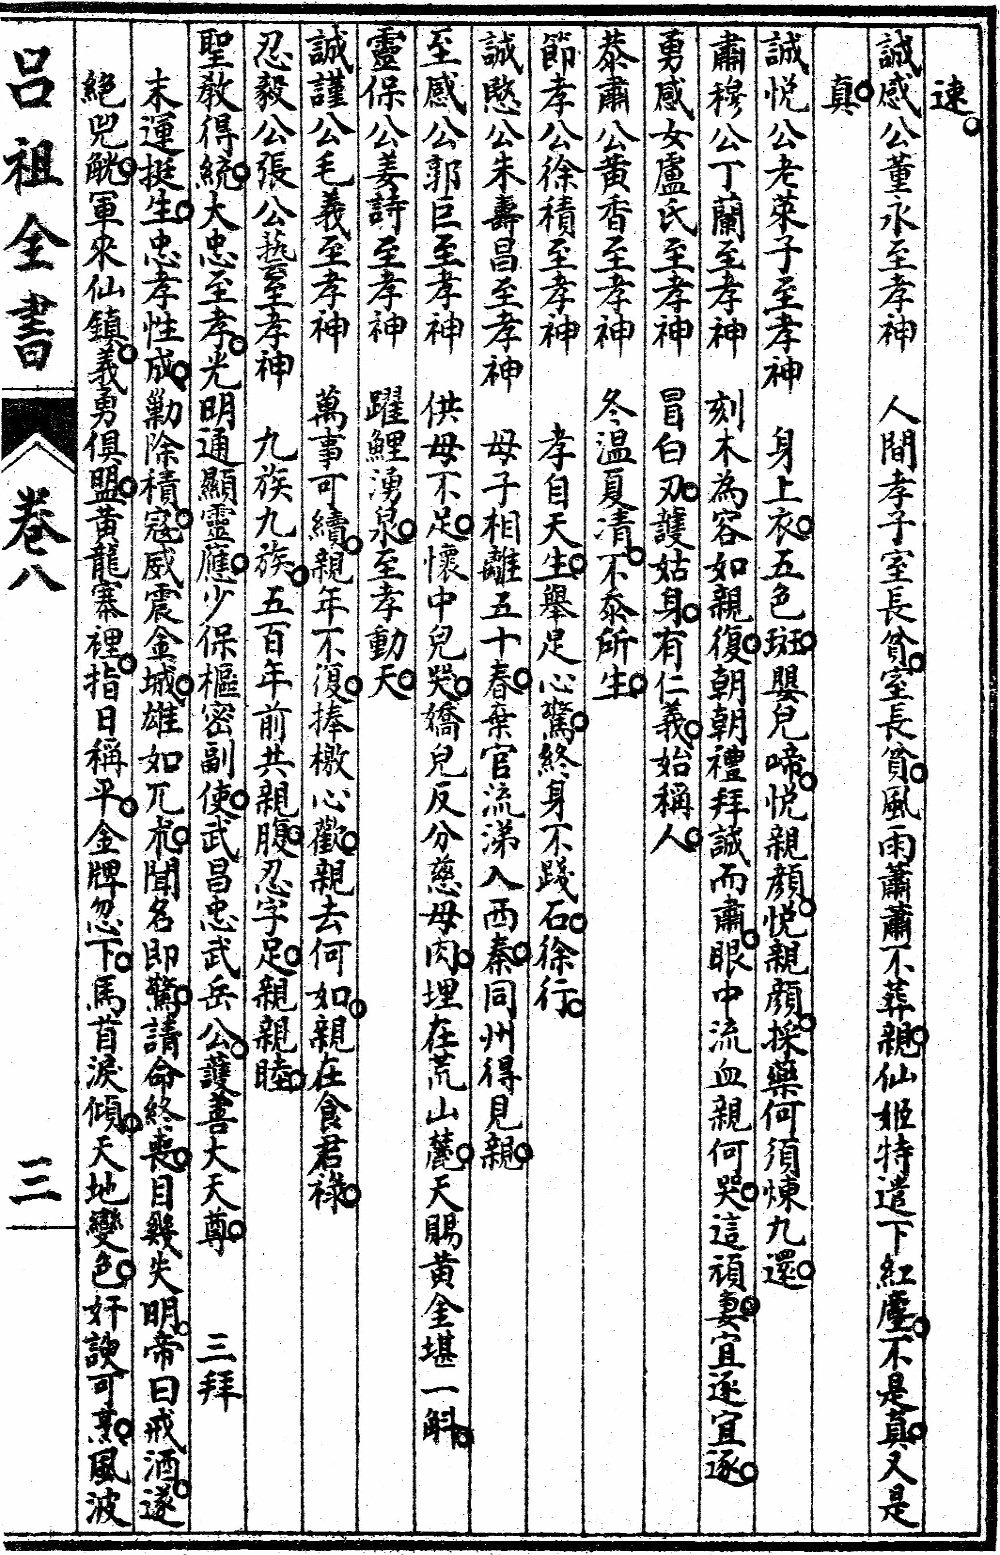 速
誠感公董永至孝神　人間孝子室長貧室長貧風雨蕭蕭不葬親仙姬特遣下紅塵不是真又是
真
誠悅公老萊子至孝神　身上衣五色斑嬰兒啼悅親顏悅親顏採藥何須煉九還
肅穆公丁蘭至孝神　刻木為容如親復朝朝禮拜誠而肅眼中流血親何哭這頑妻宜逐宜逐
勇感女盧氏至孝神　冒白刃護姑身有仁義始稱人
恭肅公黃香至孝神　冬温夏凊不忝所生
節孝公徐積至孝神　孝自天生舉足心驚終身不踐石徐行
誠愍公朱壽昌至孝神　母子相離五十春棄官流涕入西秦同州得見親
至感公郭巨至孝神　供母不足懷中兒哭嬌兒反分慈母肉埋在荒山麓天賜黃金堪一斛
靈保公姜詩至孝神　躍鯉湧泉至孝動天
誠謹公毛義至孝神　萬事可續親年不復捧檄心歡親去何如親在食君祿
忍毅公張公藝至孝神　九族九族五百年前共親腹忍字足親親睦
聖教得統大忠至孝光明通顯靈應少保樞密副使武昌忠武岳公護善大天尊　三拜
末運挺生忠孝性成勦除積寇威震金城雄如兀朮聞名即驚請命終喪目幾失明帝曰戒酒遂
絕兕觥軍來仙鎮義勇俱盟黃龍寨裡指日稱平金牌忽下馬首淚傾天地變色奸諛可烹風波
呂祖全書
卷八
三